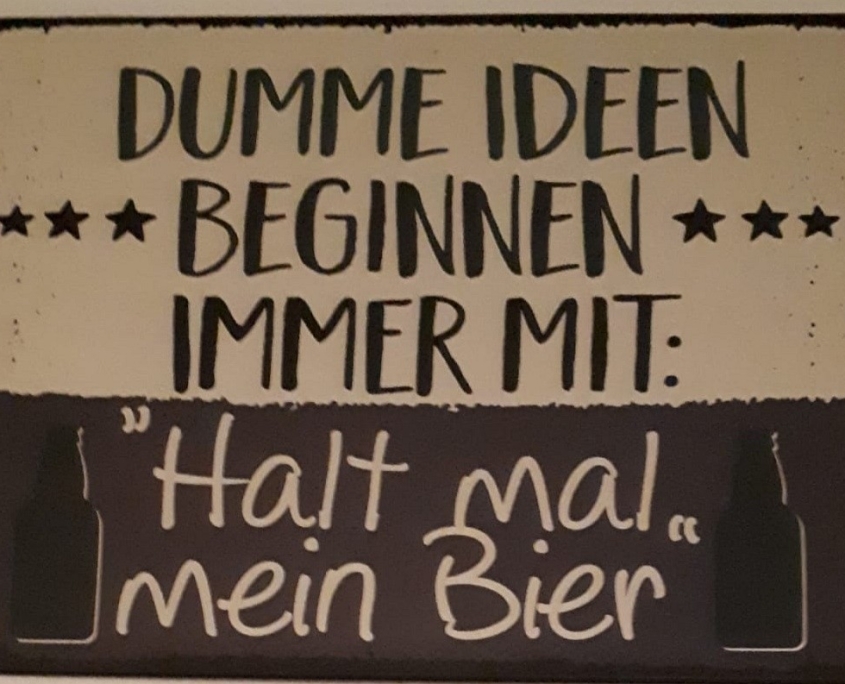 DUMME IDEEN
★★★ BEGINNEN ★★★
IMMER MIT:
"Halt mal
mein Bier"